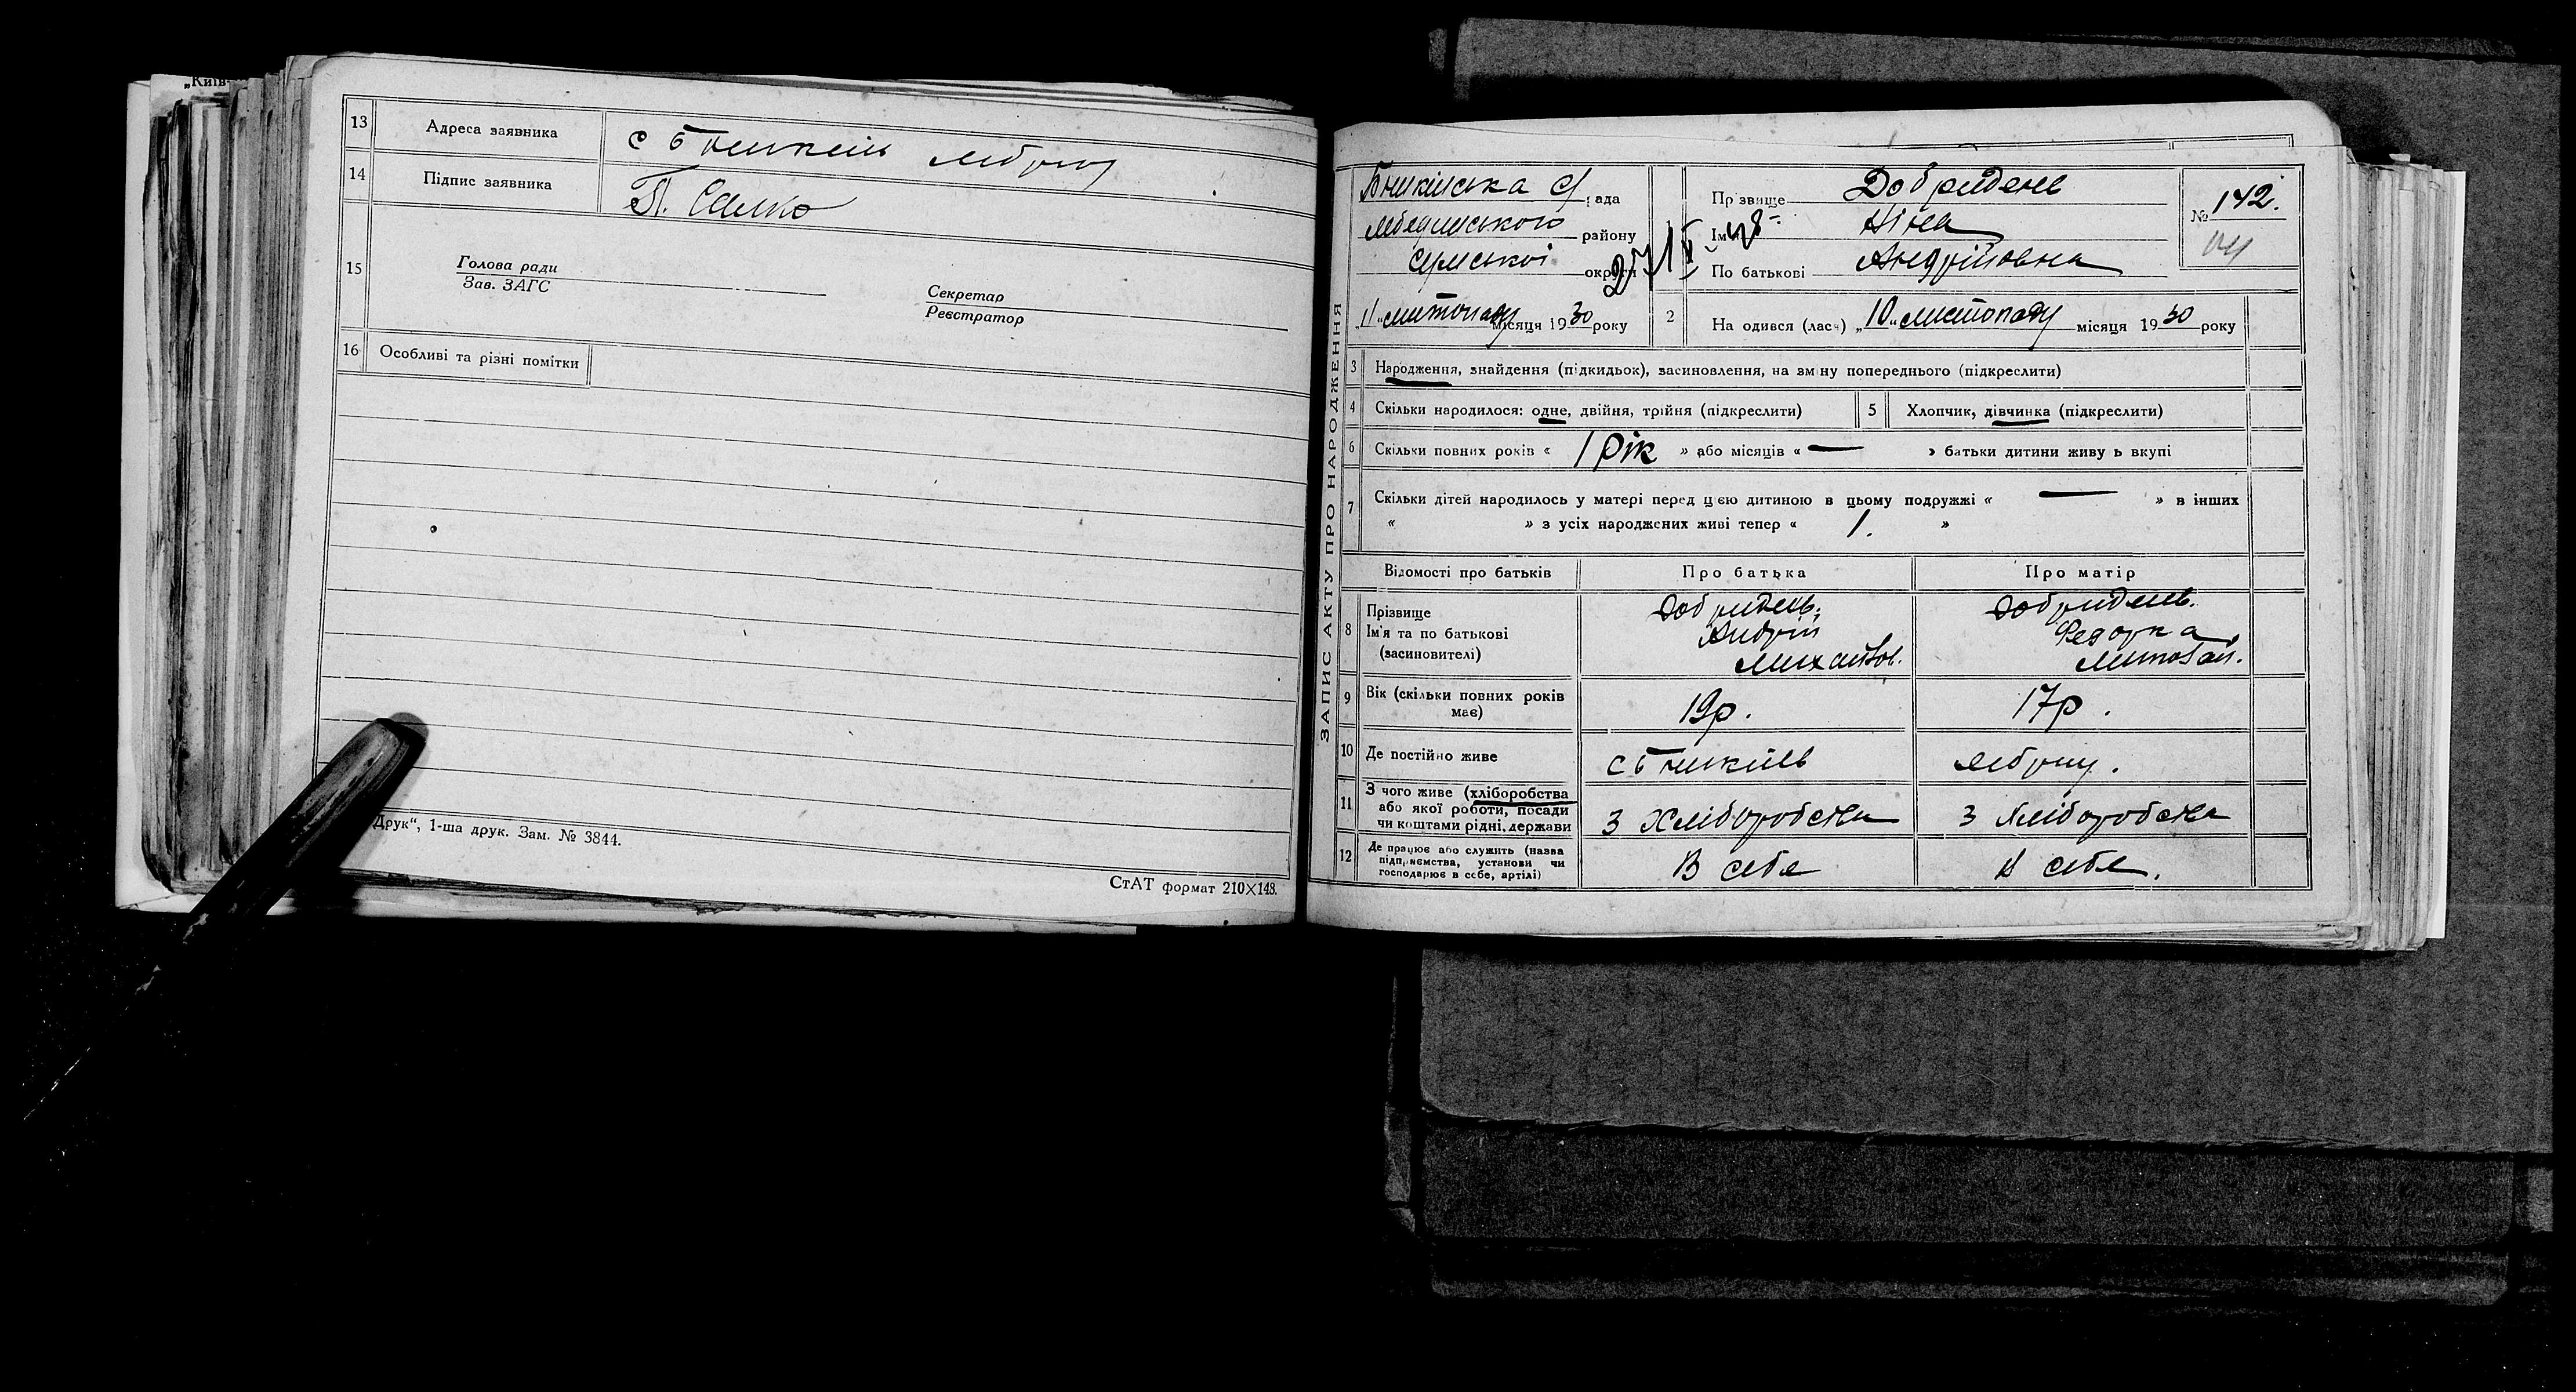 „Київ-
13 Адреса заявника с Бишкінь Лебрну
14 Підпис заявника П. Салко
15 Голова ради
Зав. ЗАГС
Секретар
Реєстратор
16 Особливі та різні помітки
Друк“, 1-ша друк. Зам. № 3844.
СтАТ формат 210×148.
ЗАПИС АКТУ ПРО НАРОДЖЕННЯ
Бишкінська с/рада
Лебединського району
Сумської округи
„11“ листопаду місяця 1930 року
Прізвище Добридень
Ім'я Ніна
По батькові Андрійовна
№ 142.
2 На одився (лась) „10“ листопаду місяця 1930 року
3 Народження, знайдення (підкидьок), засиновлення, на зміну попереднього (підкреслити)
4 Скільки народилося: одне, двійня, трійня (підкреслити)
5 Хлопчик, дівчинка (підкреслити)
6 Скільки повних років « 1 рік » або місяців « — » батьки дитини живуть вкупі
7 Скільки дітей народилось у матері перед цією дитиною в цьому подружжі « — » в інших
« » з усіх народжених живі тепер « 1. »
Відомості про батьків Про батька Про матір
8 Прізвище Добридень. Добридень.
Ім'я та по батькові Андрій Федорка
(засиновителі) Михайлов.
9 Вік (скільки повних років має) 19р. 17р.
10 Де постійно живе с Бишкінь Лебрну.
11 З чого живе (хліборобства
або якої роботи, посади
чи коштами рідні, держави
З Хліборобства З Хліборобства
12 Де працює або служить (назва
підприємства, установи чи
господарює в себе, артілі)
В себе В себе.